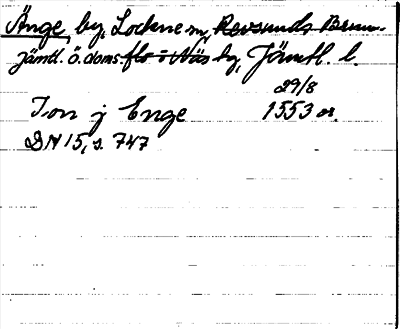 Änge by, Lockne sn, Revsunds Brunn.
jämtl. ö. doms flo i Näs by, Jämtl. l.
29/8
Jon j Enge 1553 or.
DN 15, s. 747